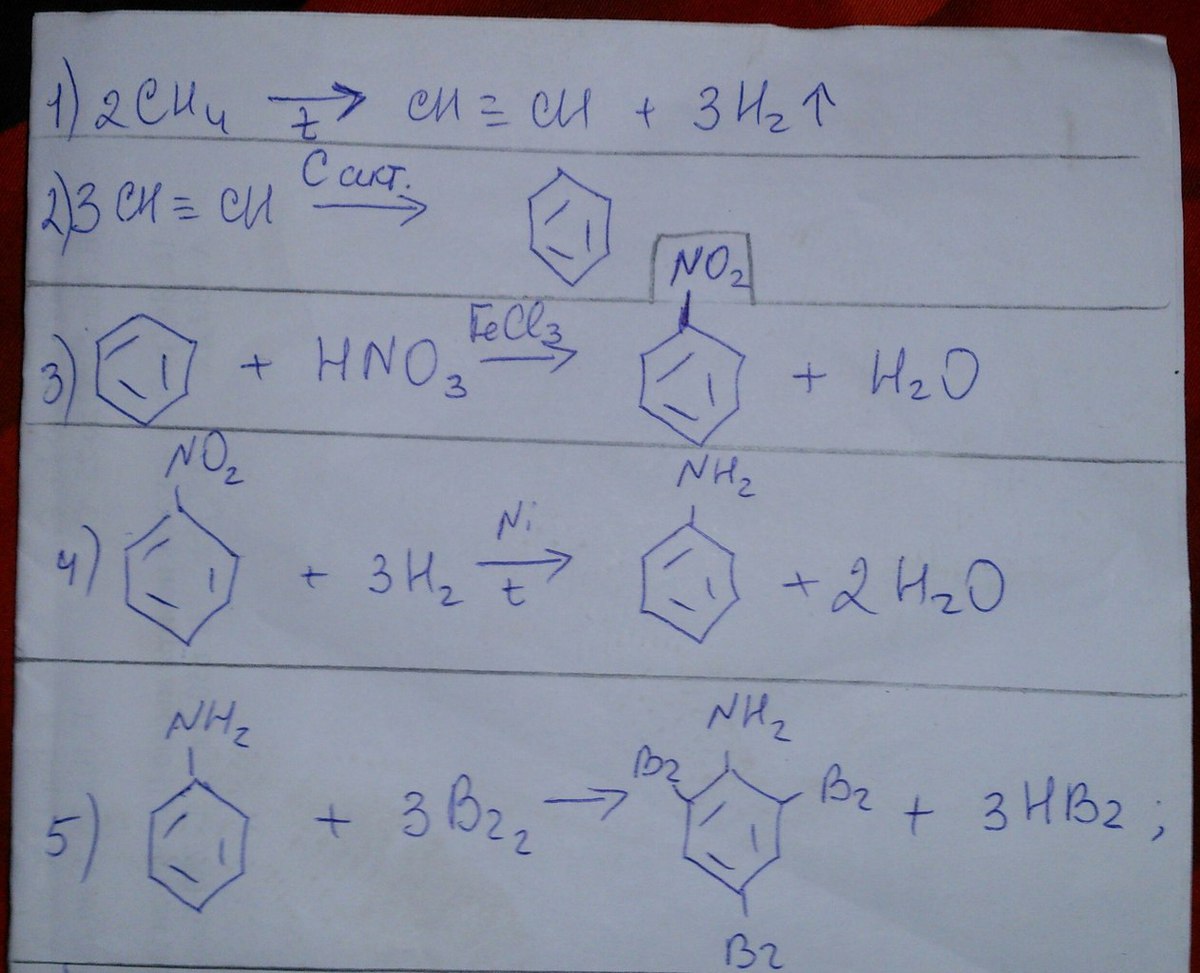 1) 2CH₄ →t CH≡CH + 3H₂↑
2) 3CH≡CH →C акт.
3) + HNO₃ →FeCl₃ NO₂ + H₂O
4) NO₂ + 3H₂ →Ni t NH₂ + 2H₂O
5) NH₂ + 3Br₂ → NH₂ Br Br Br + 3HBr;